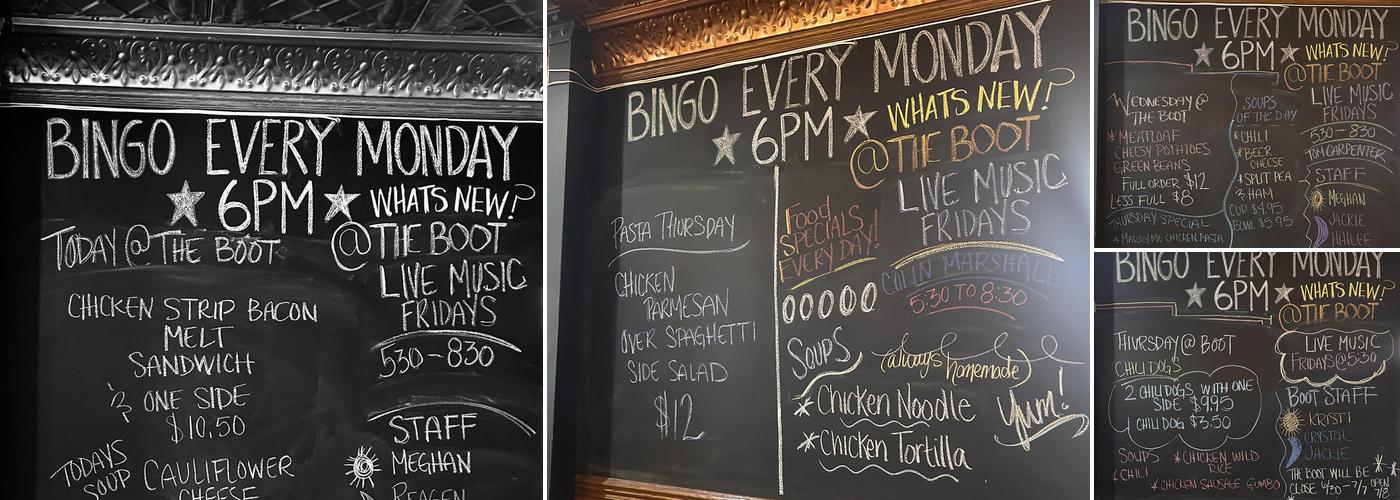 BINGO EVERY MONDAY
★ 6PM ★ WHATS NEW?
@THE BOOT
TODAY @ THE BOOT
CHICKEN STRIP BACON
MELT
SANDWICH
& ONE SIDE
$10.50
TODAYS
SOUP
CAULIFLOWER
CHEESE
LIVE MUSIC
FRIDAYS
530-830
STAFF
MEGHAN
REAGEN
BINGO EVERY MONDAY
★ 6PM ★ WHATS NEW?
@THE BOOT
PASTA THURSDAY
CHICKEN
PARMESAN
OVER SPAGHETTI
SIDE SALAD
$12
Food
SPECIALS
EVERY DAY!
LIVE MUSIC
FRIDAYS
COLIN MARSHALL
5:30 TO 8:30
SOUPS
(always homemade)
*Chicken Noodle
*Chicken Tortilla
Yum!
BINGO EVERY MONDAY
★ 6PM ★ WHATS NEW?
@THE BOOT
WEDNESDAY @
THE BOOT
*MEATLOAF
CHEESY POTATOES
GREEN BEANS
FULL ORDER $12
LESS FULL $8
THURSDAY SPECIAL
*MARRY ME CHICKEN PASTA
SOUPS
OF THE DAY
*CHILI
*BEER
CHEESE
*SPLIT PEA
& HAM
CUP $4.95
BOWL $5.95
LIVE MUSIC
FRIDAYS
530-830
TOM CARPENTER
STAFF
MEGHAN
JACKIE
HAILEE
BINGO EVERY MONDAY
★ 6PM ★ WHATS NEW?
@THE BOOT
THURSDAY @ BOOT
CHILI DOGS
2 CHILI DOGS WITH ONE
SIDE $9.95
1 CHILI DOG $3.50
SOUPS
*CHILI
*CHICKEN WILD
RICE
*CHICKEN SAUSAGE GUMBO
LIVE MUSIC
FRIDAYS @ 5:30
BOOT STAFF
KRISTI
CRYSTAL
JACKIE
THE BOOT WILL BE
CLOSE 6/30-7/7 OPEN
7/8